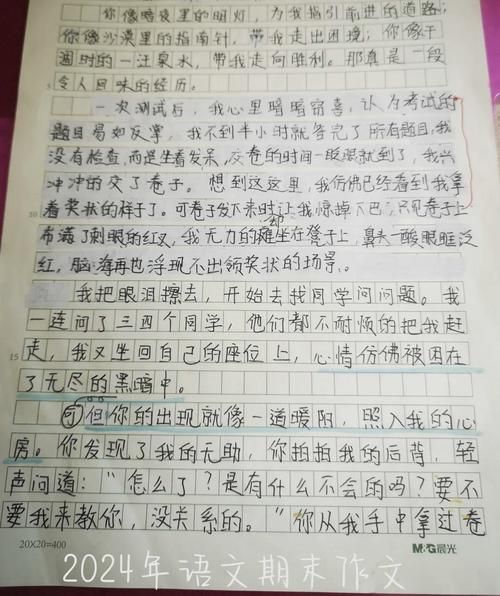 你像暗夜里的明灯，为我指引前进的道路；
你像沙漠里的指南针，带我走出困境；你像干
涸时的一汪泉水，带我走向胜利。那真是一段
5
令人回味的经历。
一次测试后，我心里暗暗窃喜，认为考试的
题目易如反掌，我不到半小时就答完了所有题目，我
没有检查，而是坐着发呆，交卷的时间一眨眼就到了，我兴
冲冲的交了卷子。想到这这里，我仿佛已经看到我拿
10
着奖状的样子了。可卷子发下来时却让我惊掉下巴；只见卷子上
布满了刺眼的红叉，我无力的瘫坐在凳子上，鼻头一酸眼眶泛
红，脑海再也浮现不出领奖状的场景。
我把眼泪擦去，开始去找同学问问题。我
一连问了三四个同学，他们都不耐烦的把我赶
15
走，我又坐回自己的座位上，心情仿佛被困在
了无尽的黑暗中。
但你的出现就像一道暖阳，照入我的心
房。你发现了我的无助，你拍拍我的后背，轻
声问道：“怎么了？是有什么不会的吗？要不
要我来教你，没关系的。”你从我手中拿过卷
20×20=400
M&G晨光
2024年语文期末作文